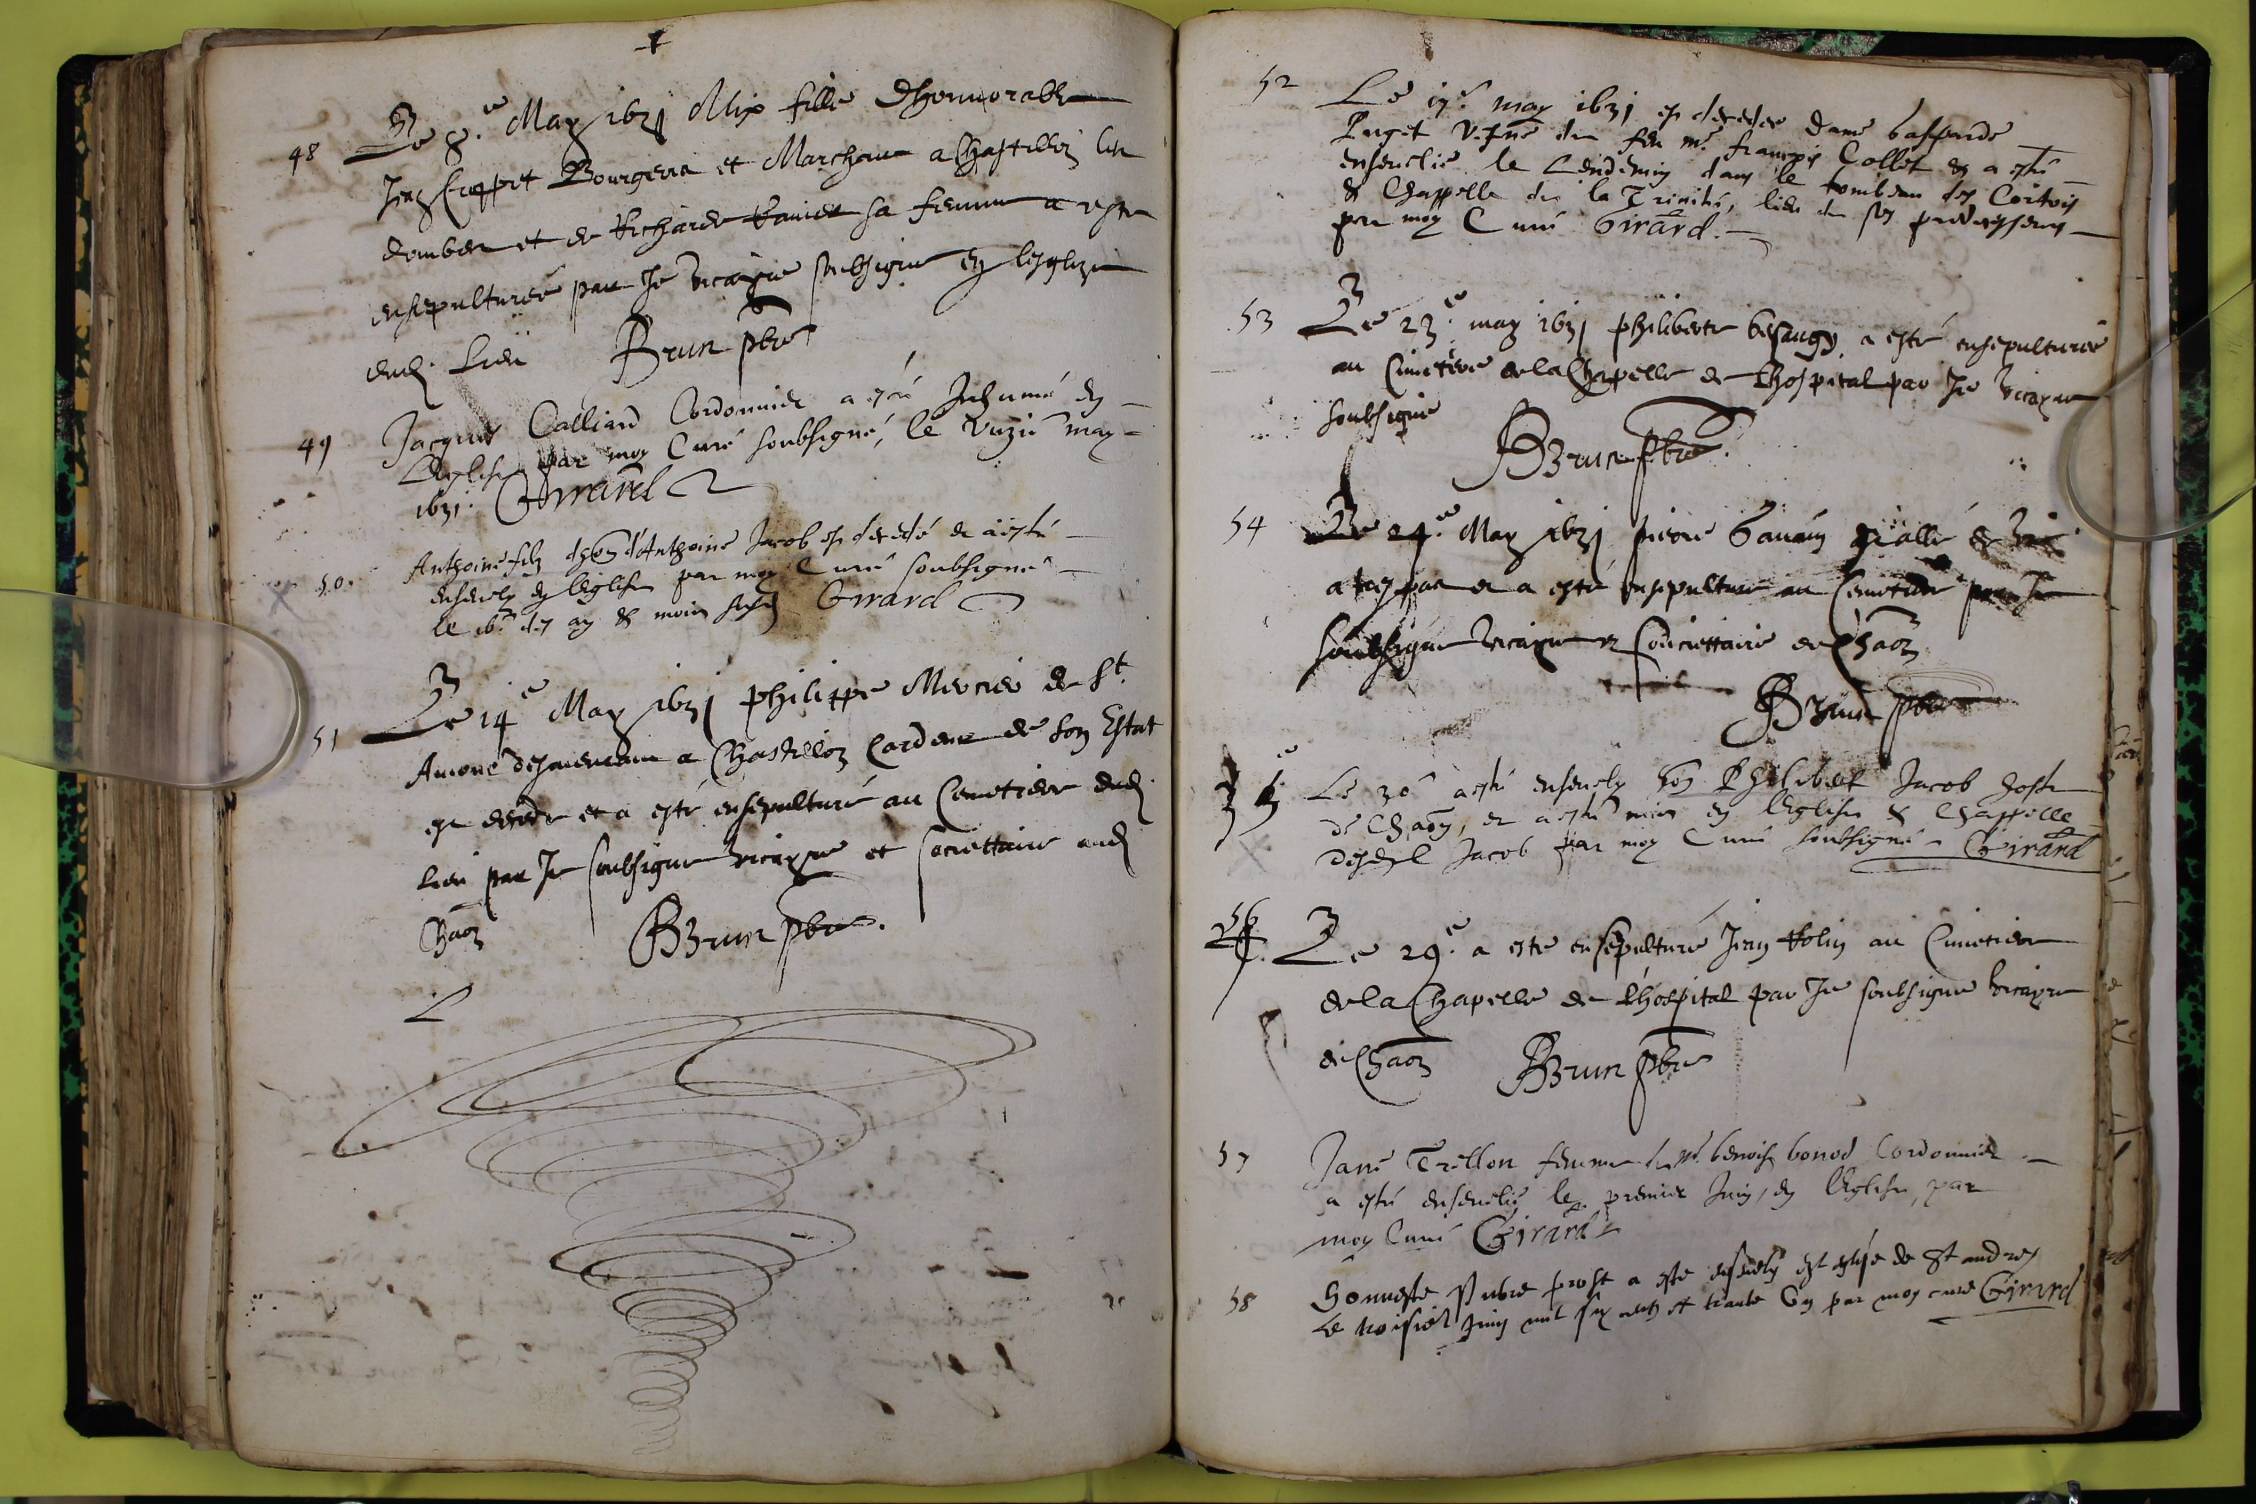 48
Le 8.e May 1631 Alix fille Dhonnorable
Jean Bourgeois et Marchant a Chastillon les
dombes et de Richarde sa femme a este
ensepulturée par Je vicayre soubsigne en leglize
dud. Lieu Brun pbre
49
Jacques Calliard Cordonnier a esté Inhumé en
Leglise par moy Curé soubsigné, le unzié may
1631. Girard
50.
Anthoine filz d'Anthoine Jacob est decedé et a esté
ensevely en leglise par moy Curé soubsigné
le 16.e des an & mois susd Girard
51
Le 14e May 1631 Philippe Mercier de St.
Amour demeurant a Chastillon Cardeur de son Estat
est decede et a esté ensepulturé au Cemetiere dud.
Lieu par Je soubsigne vicayre et societtaire aud
Chaon Brun pbre.
L
52
Le may 1631 est decedee dame
Puget vefve de feu me. françois Collet & a esté
ensevelie le Lendemin dans le tombeau des
& Chappelle de la Trinité, lieu de ses predecesseurs
par moy Curé Girard.
53
Le 23.e may 1631 philiberte a esté ensepulturée
au Cimetiere de la Chapelle de Lhospital par Je vicayre
soubsigne
Brun pbre.
54
Le 24.e May 1631 pierre
et a esté ensepulturé au Cemetiere par Je
soubsigne vicayre et societtaire de Chaon
Brun pbre
Le 30e a esté ensevely Philibert Jacob hoste
de Chaon, et a esté mis en leglise & Chappelle
desd Jacob par moy Curé soubsigné Girard
56
Le 29.e a este ensepulturé Jean au Cimetiere
de la Chapelle de Lhospital par Je soubsigne vicayre
de Chaon Brun pbre
57
Jane Trellon femme de me. benoist bonod Cordonnier
a esté ensevelie le premier Juin, en leglise, par
moy Curé Girard
58
honneste prost a este ensevely en leglise de St andre
Le Juin mil six cents et trante Un par moy cure Girard